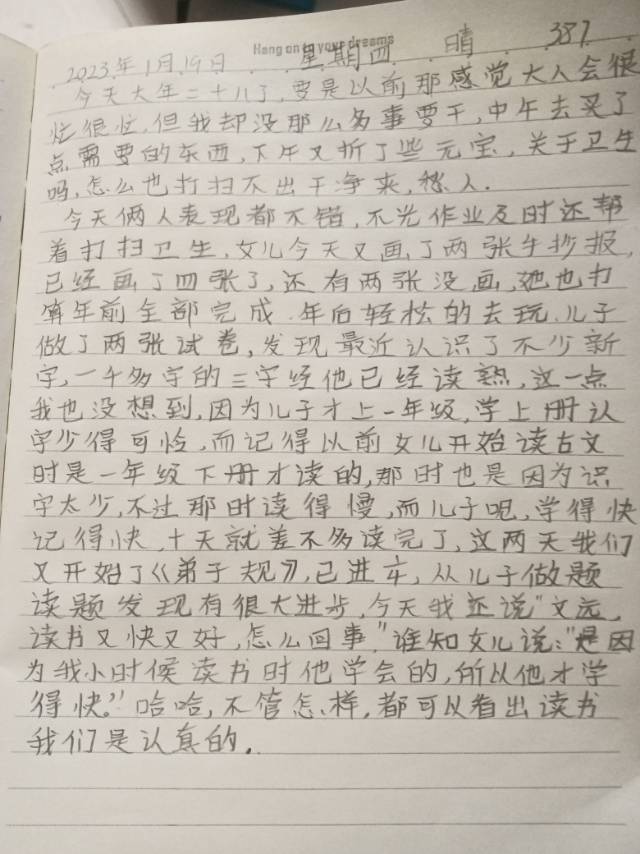 Hang on to your dreams
2023年1月19日 星期四 晴 387
今天大年二十八了,要是以前那感觉大人会很
忙很忙,但我却没那么多事要干,中午去买了
点需要的东西,下午又折了些元宝,关于卫生
吗,怎么也打扫不出干净来,愁人.
今天俩人表现都不错,不光作业及时还帮
着打扫卫生,女儿今天又画了两张手抄报,
已经画了四张了,还有两张没画,她也打
算年前全部完成.年后轻松的去玩.儿子
做了两张试卷,发现最近认识了不少新
字,一千多字的三字经他已经读熟,这一点
我也没想到,因为儿子才上一年级,学上册认
字少得可怜,而记得以前女儿开始读古文
时是一年级下册才读的,那时也是因为识
字太少,不过那时读得慢,而儿子呢,学得快
记得快,十天就差不多读完了,这两天我们
又开始了《弟子规》,已进车,从儿子做题
读题发现有很大进步,今天我还说"文远,
读书又快又好,怎么回事"谁知女儿说:"是因
为我小时候读书时他学会的,所以他才学
得快。"哈哈,不管怎样,都可以看出读书
我们是认真的.